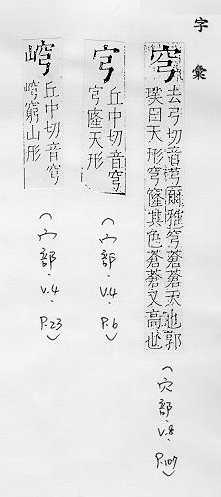 字彙
穹
去弓切音芎爾雅穹蒼蒼天也郭
璞曰天形穹窿其色蒼蒼又高也
(穴部.V.8.P.107)
宆
丘中切音穹
宆隆天形
(宀部.V.4.P.6)
丘中切音穹
窮山形
(山部.V.4.P.23)